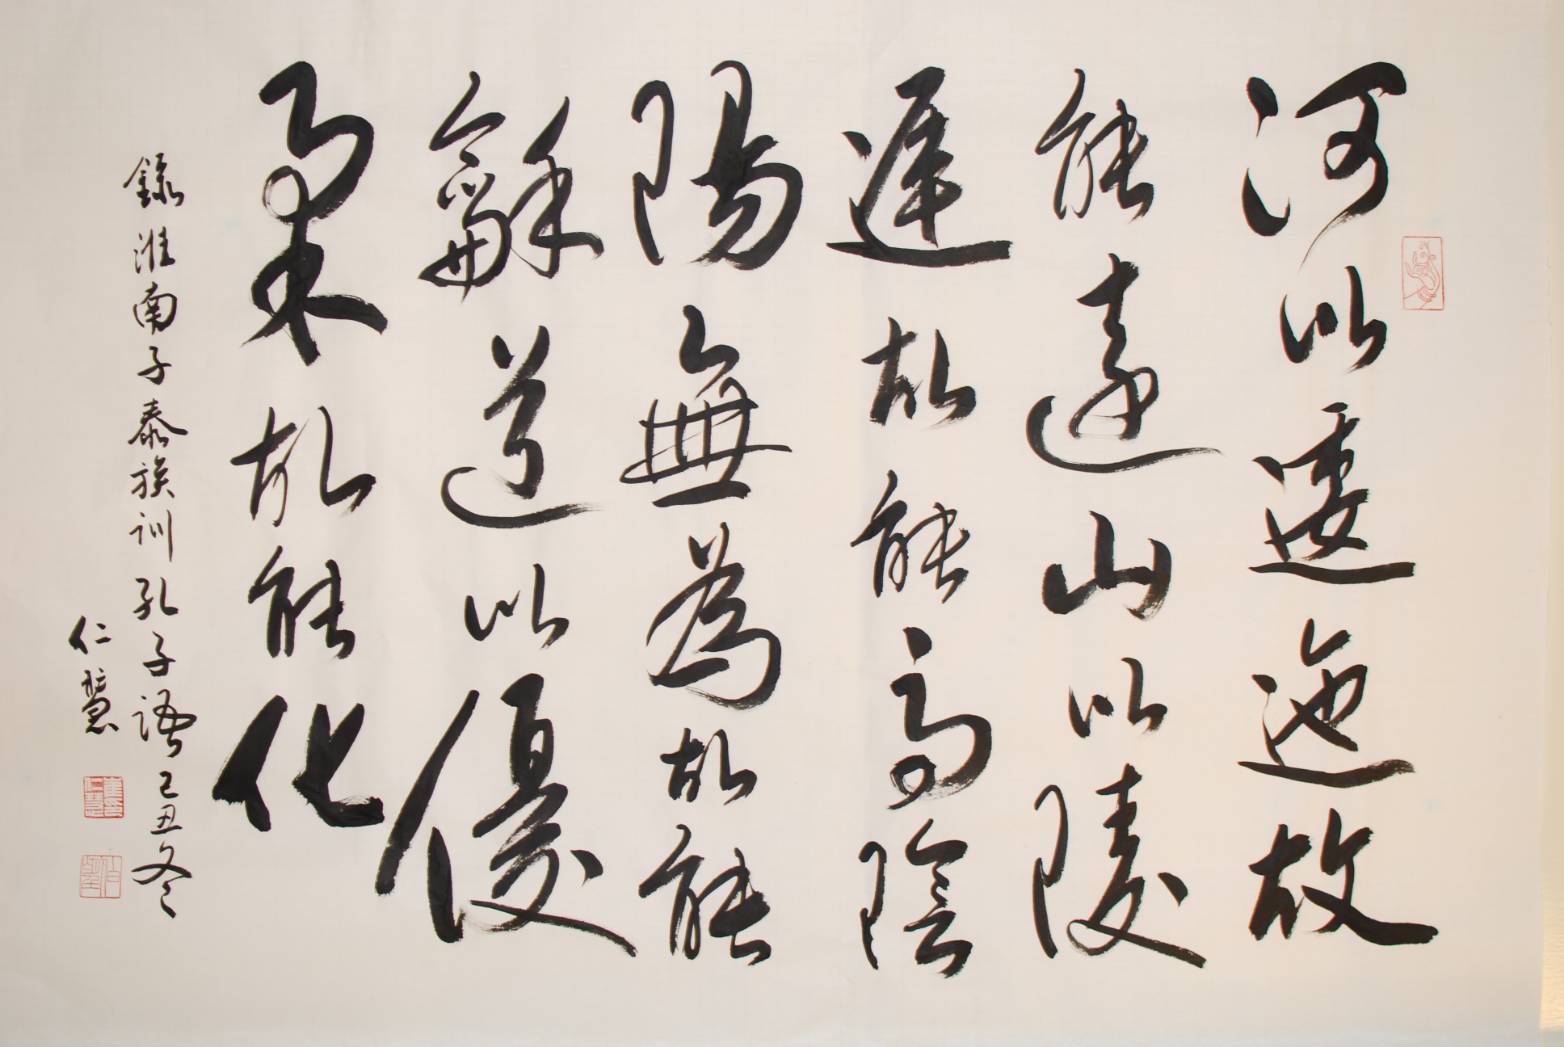 河以逶迤故
能遠山以陵
遲故能高陰
陽無為故能
龢道以優
柔故能化
錄淮南子泰族训孔子語己丑冬
仁慧